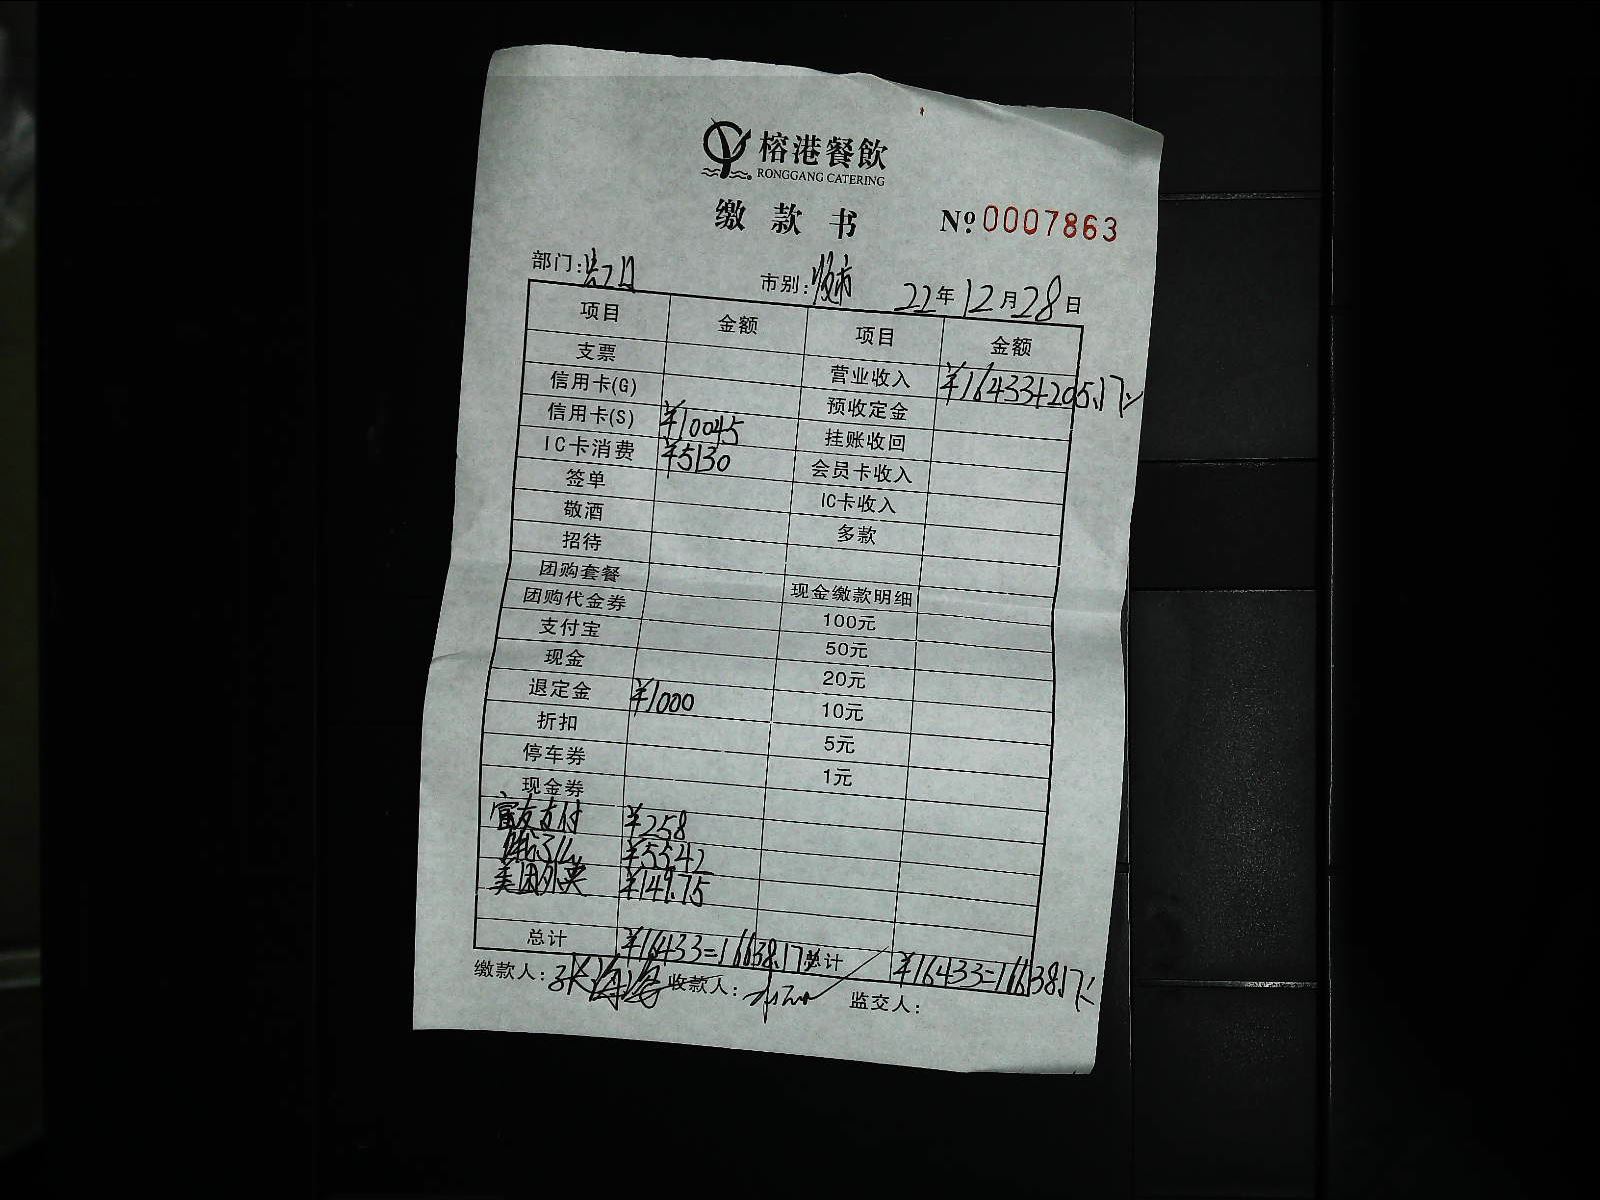 榕港餐飲
RONGGANG CATERING
缴款书 Nº 0007863
部门: 市别: 22年12月28日
项目 金额 项目 金额
支票 营业收入 ¥16433+205.17
信用卡(G) 预收定金
信用卡(S) ¥10045 挂账收回
IC卡消费 ¥5130 会员卡收入
签单 IC卡收入
敬酒 多款
招待
团购套餐 现金缴款明细
团购代金券 100元
支付宝 50元
现金 20元
退定金 ¥1000 10元
折扣 5元
停车券 1元
现金券
富友支付 ¥258
饿了么 ¥55.42
美团外卖 ¥149.75
总计 ¥16433=16638.17 总计 ¥16433=16638.17
缴款人: 张海海 收款人: 监交人: